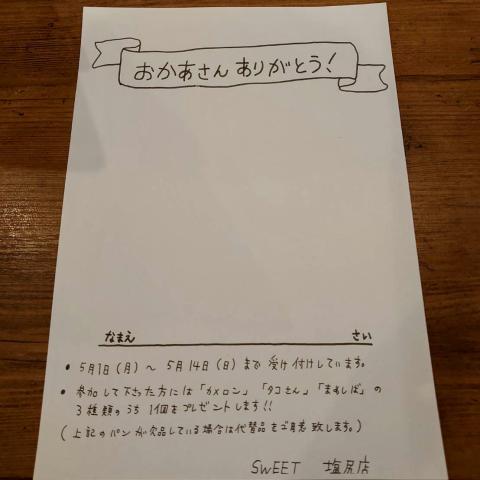 おかあさん ありがとう!
なまえ さい
• 5月1日(月)〜 5月14日(日)まで 受け付けしています。
• 参加して下さった方には「カメロン」「タコさん」「まめしば」の
3種類のうち 1個をプレゼントします!!
(上記のパンが欠品している場合は代替品をご用意致します。)
SWEET 塩尻店